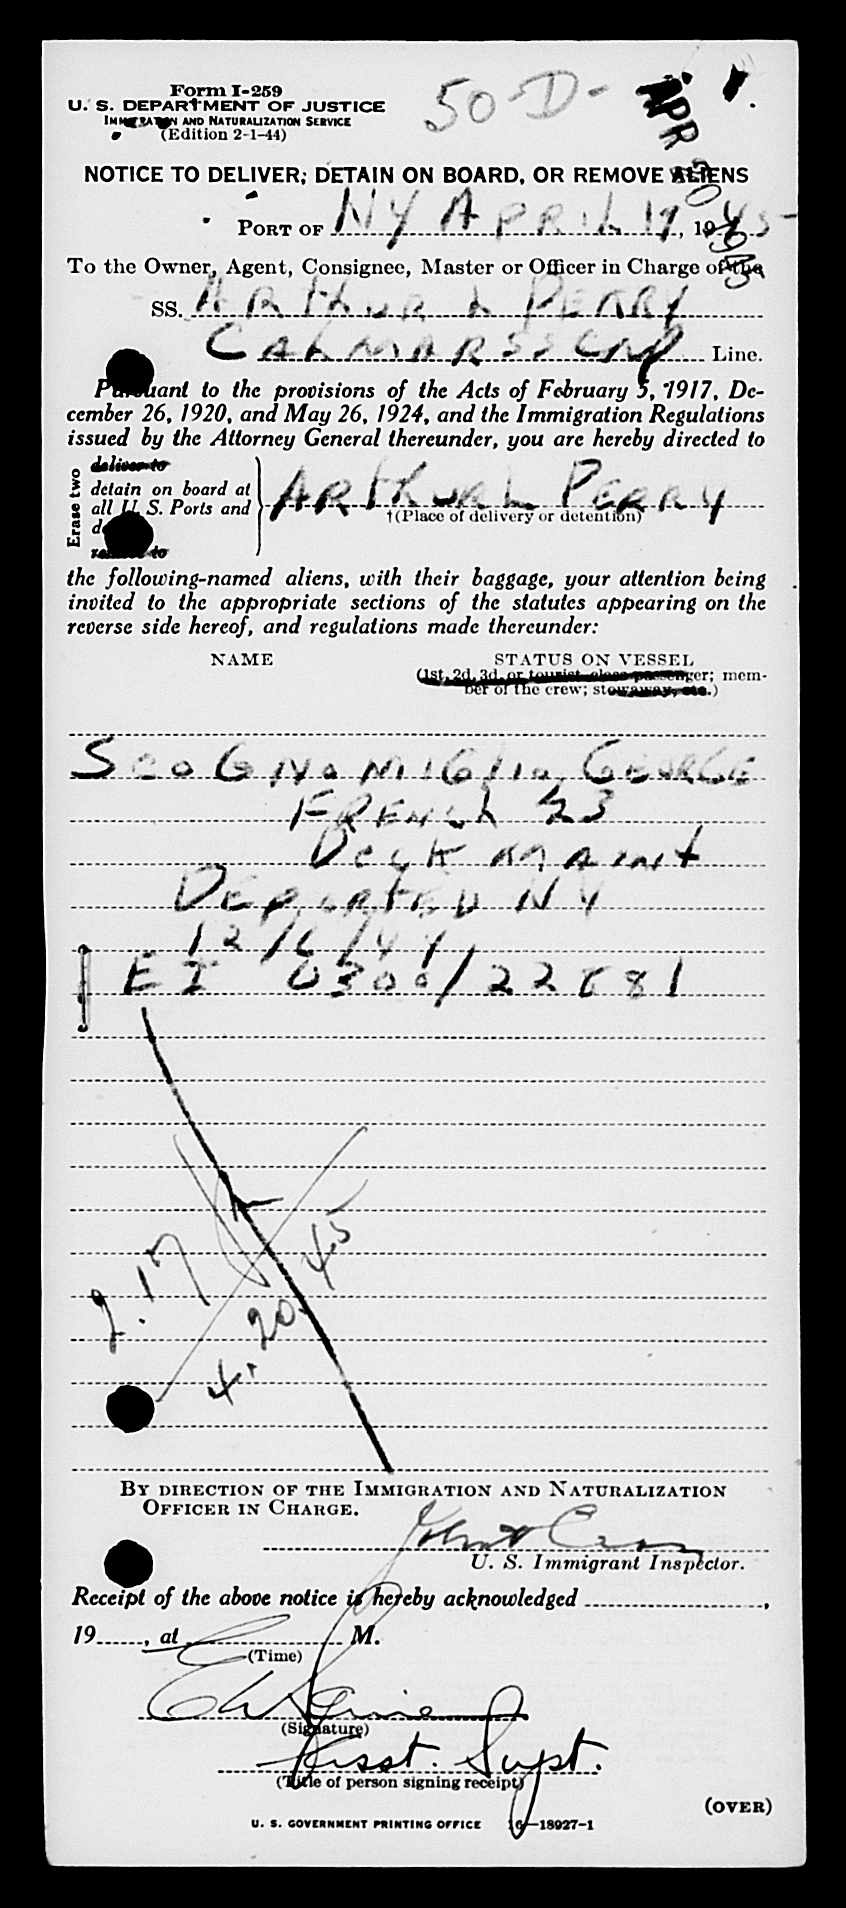 Form I-259
U. S. DEPARTMENT OF JUSTICE
IMMIGRATION AND NATURALIZATION SERVICE
(Edition 2-1-44)
50-D-
APR 20 1945
NOTICE TO DELIVER; DETAIN ON BOARD, OR REMOVE ALIENS
PORT OF NY APRIL 19, 1945
To the Owner, Agent, Consignee, Master or Officer in Charge of the
SS. ARTHUR L PERRY
CALMARSSCORP Line.
Pursuant to the provisions of the Acts of February 5, 1917, De-
cember 26, 1920, and May 26, 1924, and the Immigration Regulations
issued by the Attorney General thereunder, you are hereby directed to
Erase two
deliver to
detain on board at
all U. S. Ports and
ARTHUR L PERRY
†(Place of delivery or detention)
the following-named aliens, with their baggage, your attention being
invited to the appropriate sections of the statutes appearing on the
reverse side hereof, and regulations made thereunder:
NAME STATUS ON VESSEL
(1st, 2d, 3d, or tourist class passenger; mem-
ber of the crew; stowaway, etc.)
SCOGNAMIGlio GEORGE
FRENCH 23
DECK MAINT
DEPARTED NY
12/6/44
EI 0300/22881
2.17
4.20.45
BY DIRECTION OF THE IMMIGRATION AND NATURALIZATION
OFFICER IN CHARGE.
U. S. Immigrant Inspector.
Receipt of the above notice is hereby acknowledged ,
19 , at M.
(Time)
(Signature)
Asst. Supt.
(Title of person signing receipt)
(OVER)
U. S. GOVERNMENT PRINTING OFFICE 16-18927-1